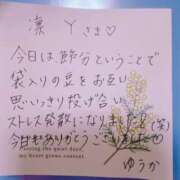 凛 Yさま♡
今日は節分ということで
袋入りの豆をお互い
思いっきり投げ合い
ストレス発散になりました!(笑)
今日もありがとうございました
ゆうか